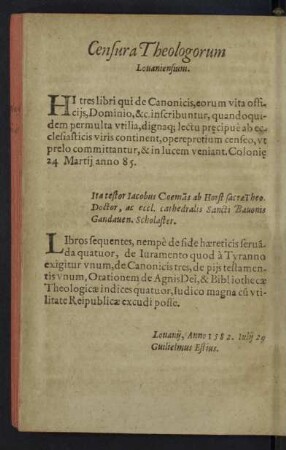 Censura Theologorum
Louaniensium.
HI tres libri qui de Canonicis, eorum vita offi-
cijs, Dominio, &c. inscribuntur, quandoqui-
dem permulta vtilia, dignaq; lectu præcipuè ab ec-
clesiasticis viris continent, operepretium censeo, vt
prelo committantur, & in lucem veniant. Colonię
24 Martij anno 85.
Ita testor Iacobus Coemãs ab Horst sacræ Theo.
Doctor, ac eccl. cathedralis Sancti Bauonis
Gandauen. Scholaster.
LIbros sequentes, nempè de fide hæreticis serua-
da quatuor, de Iuramento quod à Tyranno
exigitur vnum, de Canonicis tres, de pijs testamen-
tis vnum, Orationem de Agnis Dei, & Bibliothecæ
Theologicæ indices quatuor, Iudico magna cũ vti-
litate Reipublicæ excudi posse.
Louanij, Anno 1582. Iulij 29
Guilielmus Estius.